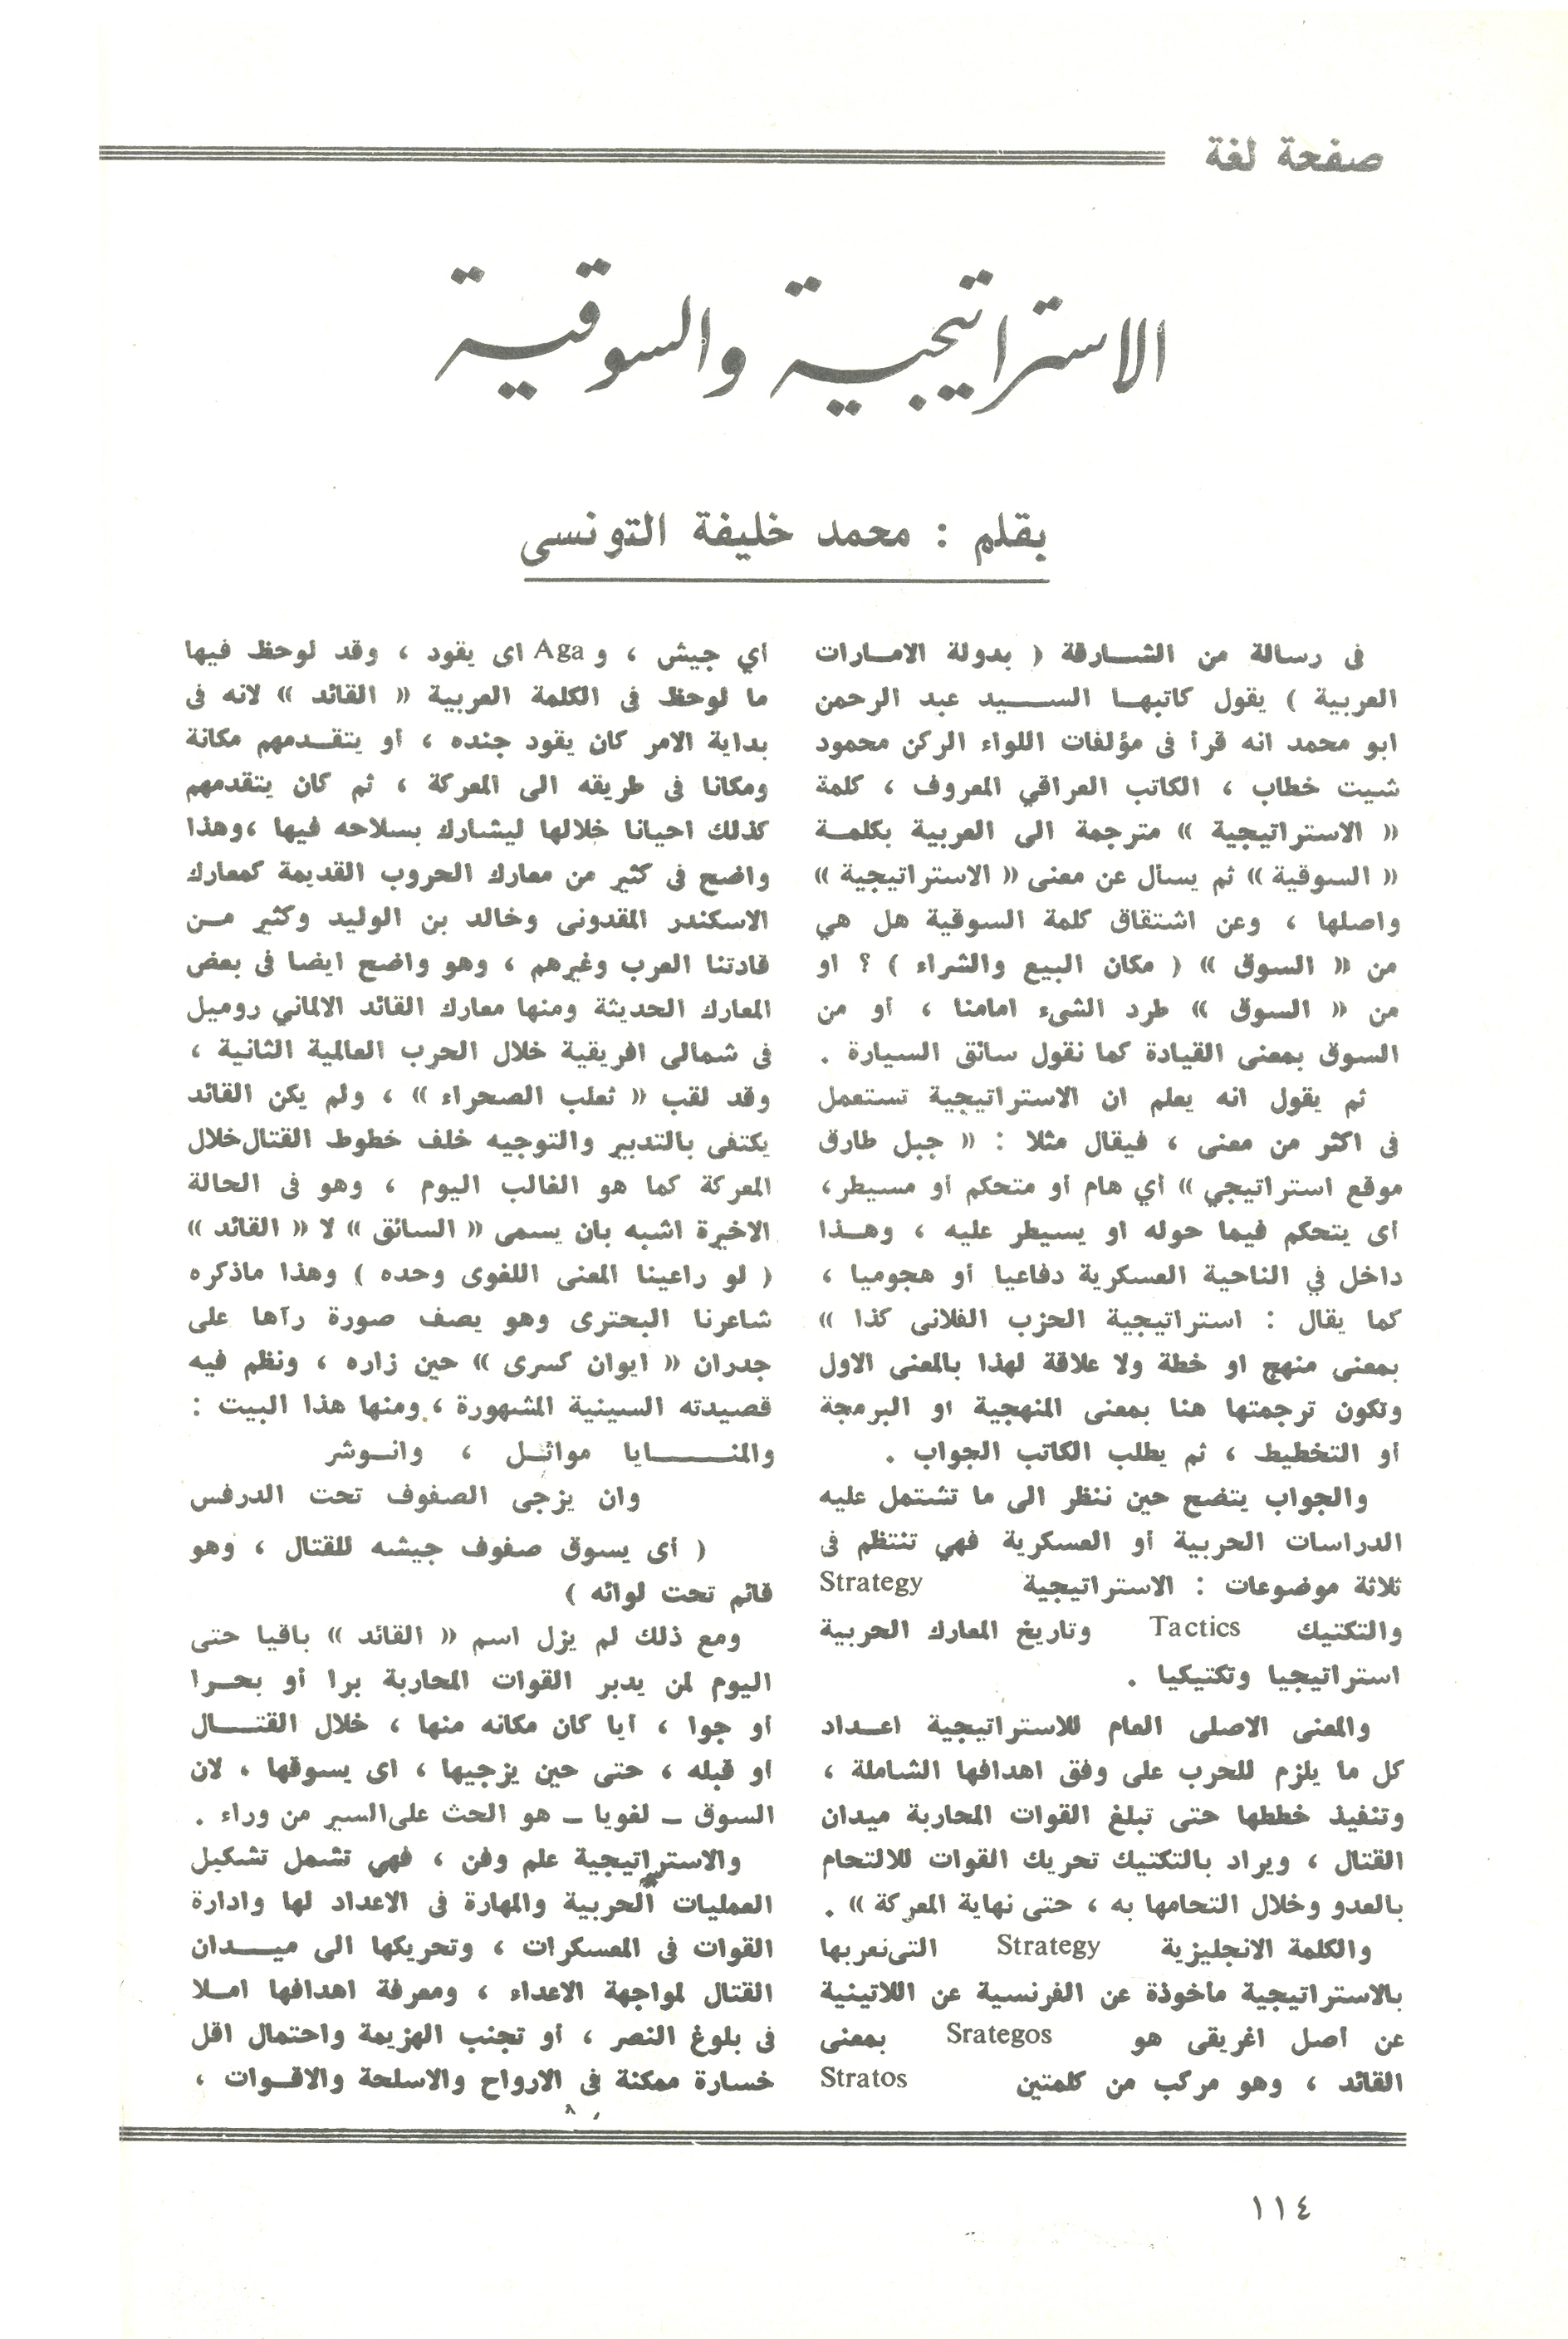 صفحة لغة
الاستراتيجية والسوقية
بقلم : محمد خليفة التونسى
فى رسالة من الشارقة ( بدولة الامارات
العربية ) يقول كاتبها السيد عبد الرحمن
ابو محمد انه قرأ فى مؤلفات اللواء الركن محمود
شيت خطاب ، الكاتب العراقي المعروف ، كلمة
« الاستراتيجية » مترجمة الى العربية بكلمة
« السوقية » ثم يسأل عن معنى « الاستراتيجية »
واصلها ، وعن اشتقاق كلمة السوقية هل هي
من « السوق » ( مكان البيع والشراء ) ؟ او
من « السوق » طرد الشىء امامنا ، أو من
السوق بمعنى القيادة كما نقول سائق السيارة .
ثم يقول انه يعلم ان الاستراتيجية تستعمل
فى اكثر من معنى ، فيقال مثلا : « جبل طارق
موقع استراتيجي » أي هام أو متحكم أو مسيطر،
أى يتحكم فيما حوله او يسيطر عليه ، وهذا
داخل في الناحية العسكرية دفاعيا أو هجوميا ،
كما يقال : استراتيجية الحزب الفلانى كذا »
بمعنى منهج او خطة ولا علاقة لهذا بالمعنى الاول
وتكون ترجمتها هنا بمعنى المنهجية او البرمجة
أو التخطيط ، ثم يطلب الكاتب الجواب .
والجواب يتضح حين ننظر الى ما تشتمل عليه
الدراسات الحربية أو العسكرية فهي تنتظم فى
ثلاثة موضوعات : الاستراتيجية Strategy
والتكتيك Tactics وتاريخ المعارك الحربية
استراتيجيا وتكتيكيا .
والمعنى الاصلى العام للاستراتيجية اعداد
كل ما يلزم للحرب على وفق اهدافها الشاملة ،
وتنفيذ خططها حتى تبلغ القوات المحاربة ميدان
القتال ، ويراد بالتكتيك تحريك القوات للالتحام
بالعدو وخلال التحامها به ، حتى نهاية المعركة » .
والكلمة الانجليزية Strategy التى نعربها
بالاستراتيجية مأخوذة عن الفرنسية عن اللاتينية
عن أصل اغريقى هو Srategos بمعنى
القائد ، وهو مركب من كلمتين Stratos
أي جيش ، و Aga اى يقود ، وقد لوحظ فيها
ما لوحظ فى الكلمة العربية « القائد » لانه فى
بداية الامر كان يقود جنده ، أو يتقدمهم مكانة
ومكانا فى طريقه الى المعركة ، ثم كان يتقدمهم
كذلك احيانا خلالها ليشارك بسلاحه فيها ،وهذا
واضح فى كثير من معارك الحروب القديمة كمعارك
الاسكندر المقدونى وخالد بن الوليد وكثير من
قادتنا العرب وغيرهم ، وهو واضح ايضا فى بعض
المعارك الحديثة ومنها معارك القائد الالماني روميل
فى شمالى افريقية خلال الحرب العالمية الثانية ،
وقد لقب « ثعلب الصحراء » ، ولم يكن القائد
يكتفى بالتدبير والتوجيه خلف خطوط القتال خلال
المعركة كما هو الغالب اليوم ، وهو فى الحالة
الاخيرة اشبه بان يسمى « السائق » لا « القائد »
( لو راعينا المعنى اللغوى وحده ) وهذا ماذكره
شاعرنا البحترى وهو يصف صورة رآها على
جدران « ايوان كسرى » حين زاره ، ونظم فيه
قصيدته السينية المشهورة ، ومنها هذا البيت :
والمنايا مواثل ، وانوشر
وان يزجى الصفوف تحت الدرفس
( أى يسوق صفوف جيشه للقتال ، وهو
قائم تحت لوائه )
ومع ذلك لم يزل اسم « القائد » باقيا حتى
اليوم لمن يدبر القوات المحاربة برا أو بحرا
أو جوا ، أيا كان مكانه منها ، خلال القتال
او قبله ، حتى حين يزجيها ، اى يسوقها ، لان
السوق ــ لغويا ــ هو الحث على السير من وراء .
والاستراتيجية علم وفن ، فهي تشمل تشكيل
العمليات الحربية والمهارة فى الاعداد لها وادارة
القوات فى المعسكرات ، وتحريكها الى ميدان
القتال لمواجهة الاعداء ، ومعرفة اهدافها املا
فى بلوغ النصر ، أو تجنب الهزيمة واحتمال اقل
خسارة ممكنة فى الارواح والاسلحة والاقوات ،
١١٤